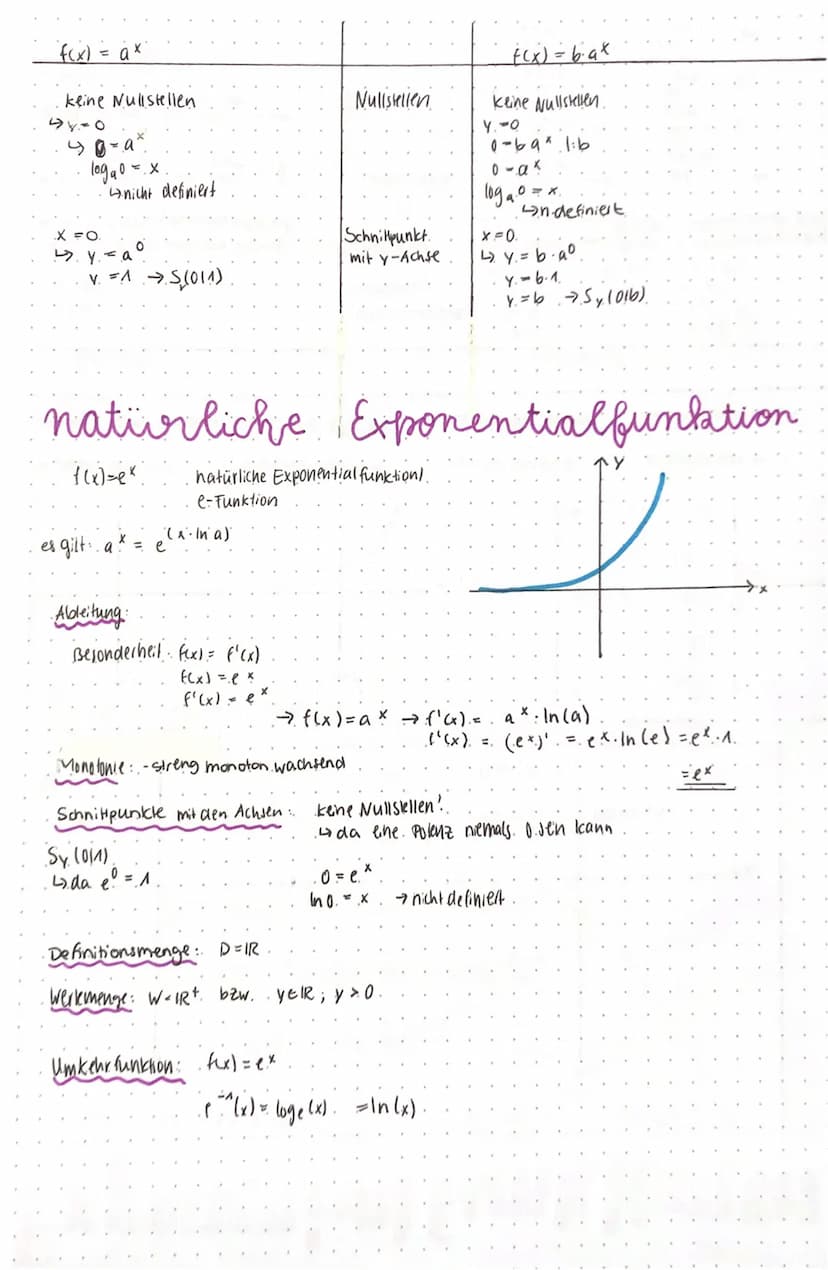 f(x) = aˣ f(x) = b·aˣ
keine Nullstellen Nullstellen keine Nullstellen
↳ y=0 y=0
↳ 0=aˣ 0=b·aˣ |:b
logₐ0 = x 0=aˣ
↳ nicht definiert logₐ0 = x
↳ n.definiert
x=0 Schnittpunkt x=0
↳ y=a⁰ mit y-Achse ↳ y=b·a⁰
y=1 → Sy(0|1) y=b·1
y=b → Sy(0|b)
natürliche Exponentialfunktion
f(x)=eˣ natürliche Exponentialfunktion/
e-Funktion
es gilt: aˣ = e^(x·ln a)
y
x
Ableitung:
Besonderheit: f(x) = f'(x)
f(x) = eˣ
f'(x) = eˣ
→ f(x)=aˣ → f'(x) = aˣ·ln(a)
f'(x) = (eˣ)' = eˣ·ln(e) = eˣ·1
= eˣ
Monotonie: - streng monoton wachsend
Schnittpunkte mit den Achsen: keine Nullstellen!
↳ da eine Potenz niemals 0 sein kann
Sy(0|1)
↳ da e⁰ = 1
0 = eˣ
ln 0 = x → nicht definiert
Definitionsmenge: D=ℝ
Wertemenge: W=ℝ⁺ bzw. y∈ℝ; y>0
Umkehrfunktion: f(x) = eˣ
f⁻¹(x) = logₑ(x) = ln(x)